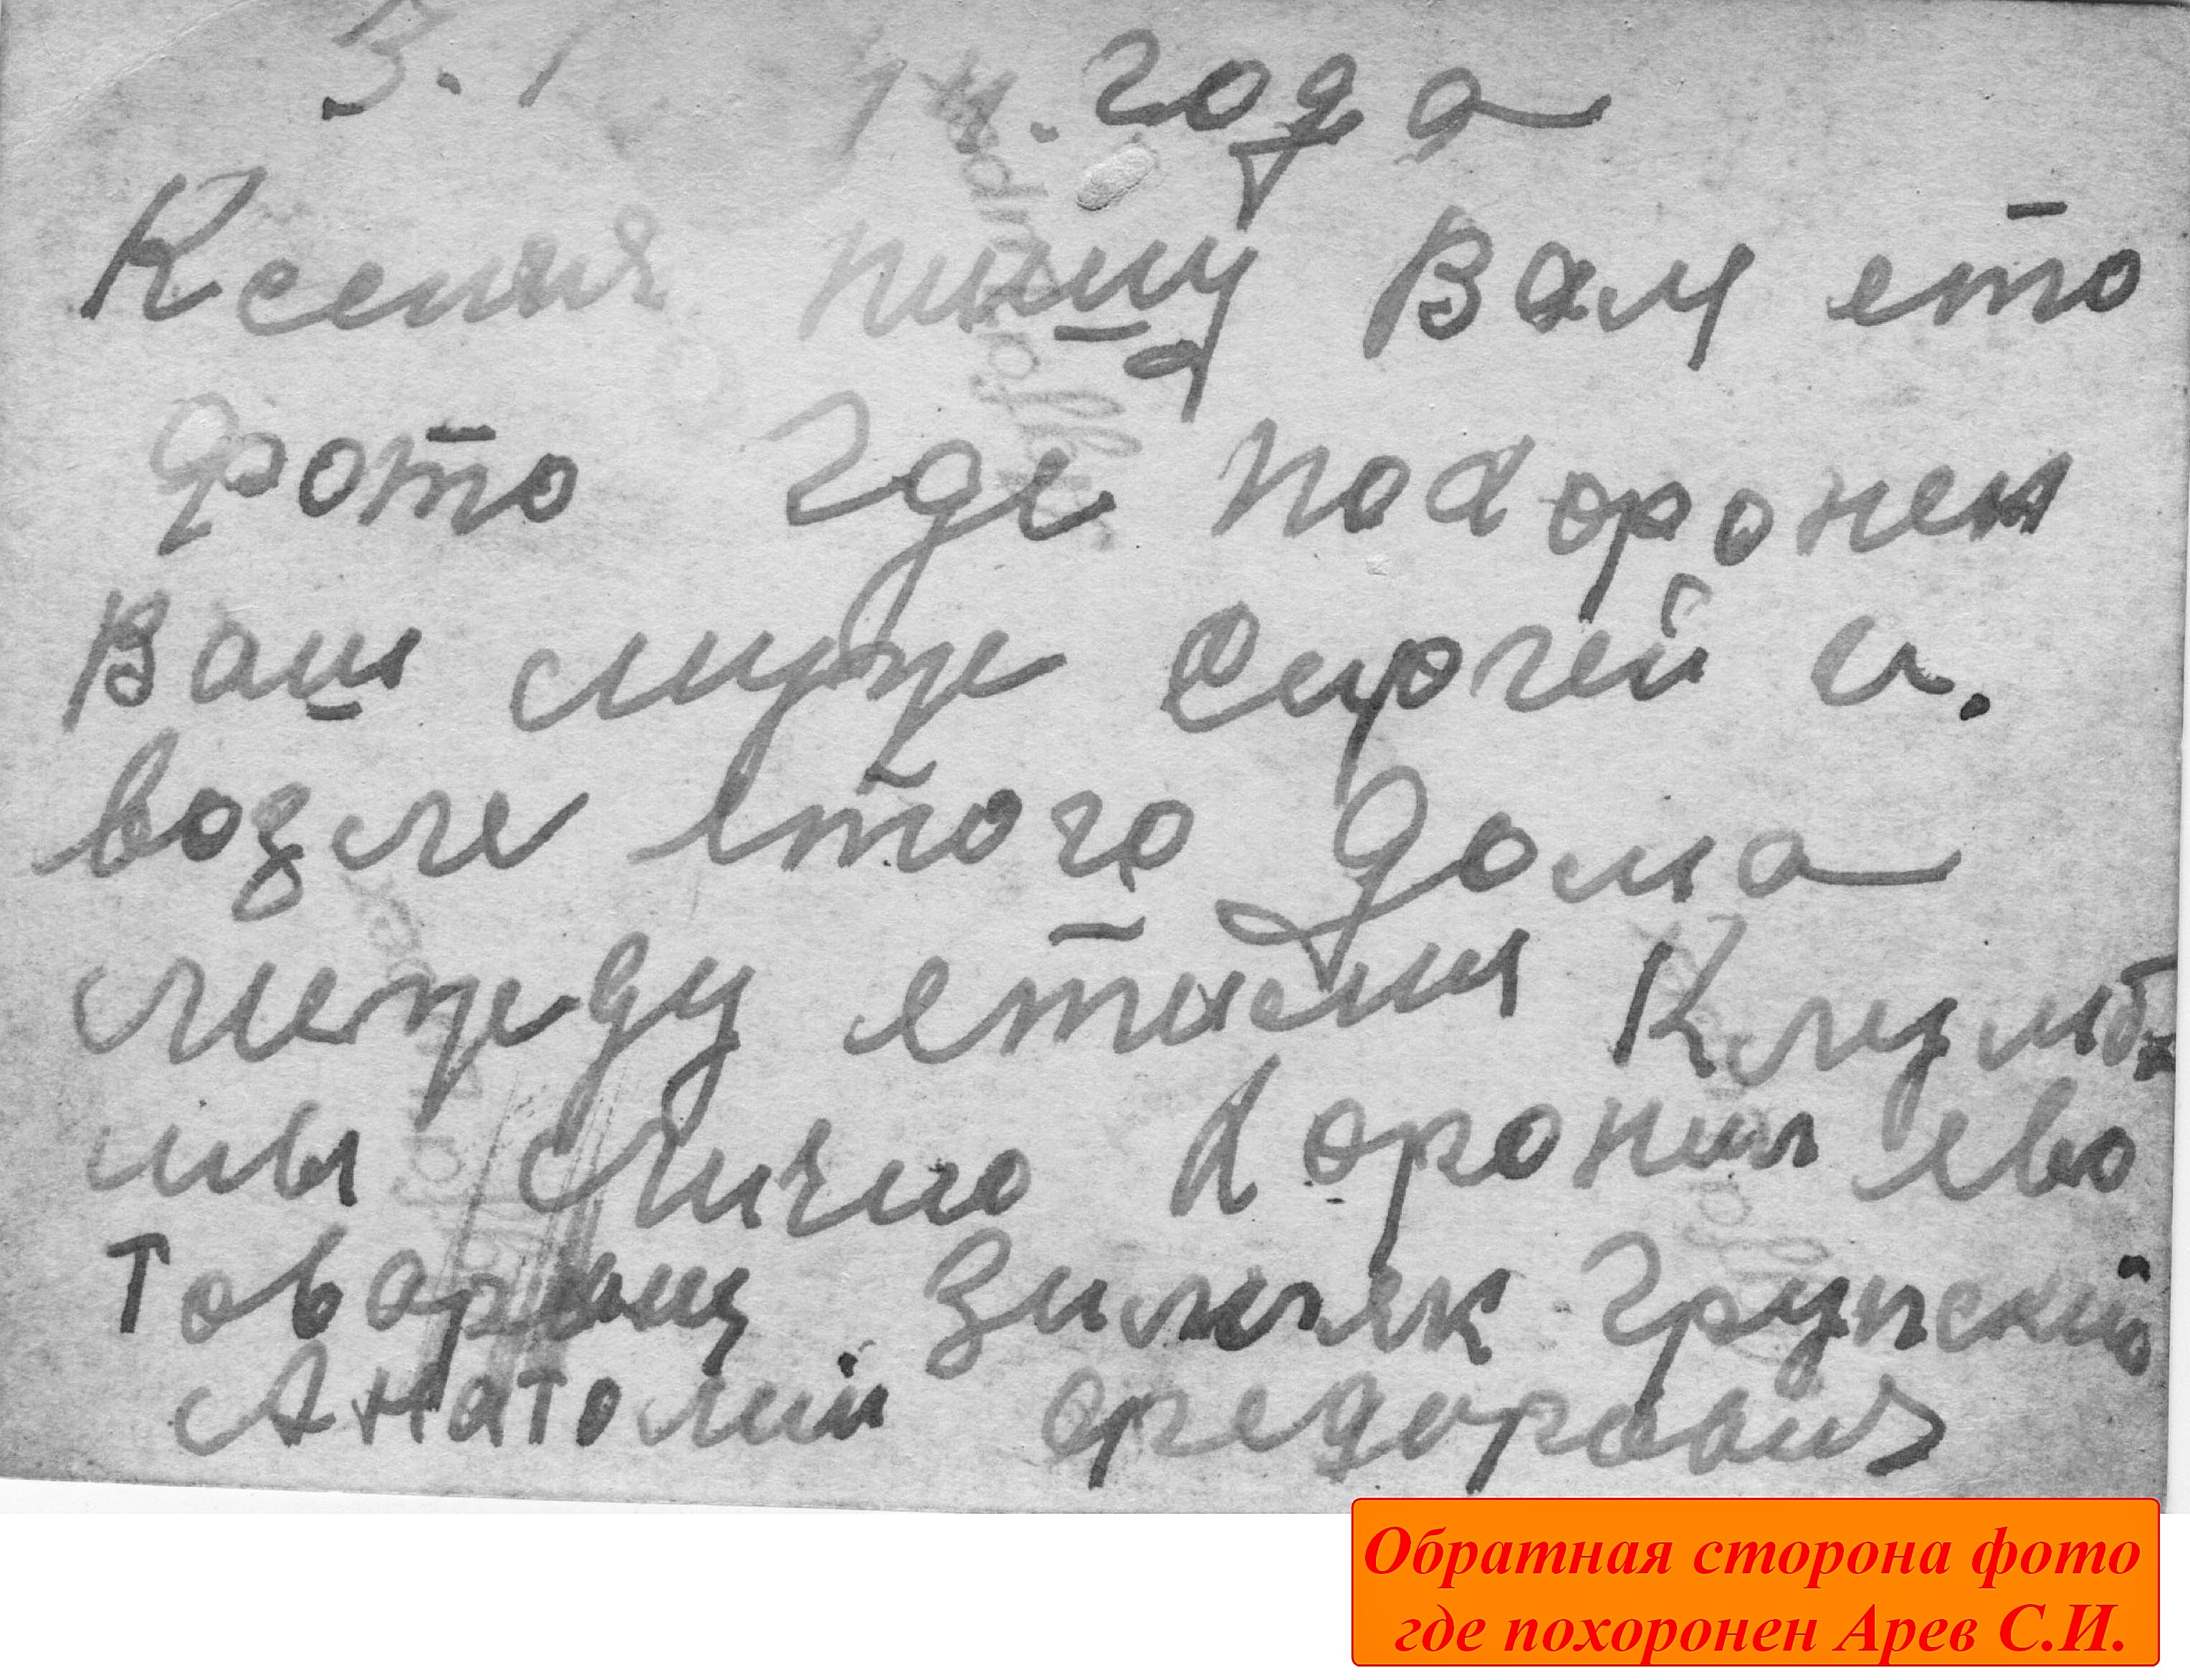 3. 1 года
Ксения пишу Вам ето
фото где похоронен
Ваш муже Сергей и.
возле етого дома
межеду етими Клумб
мы лично хоронил ево
Товарищ Зимляк Групский
Анатолий Федорович
Обратная сторона фото
где похоронен Арев С.И.